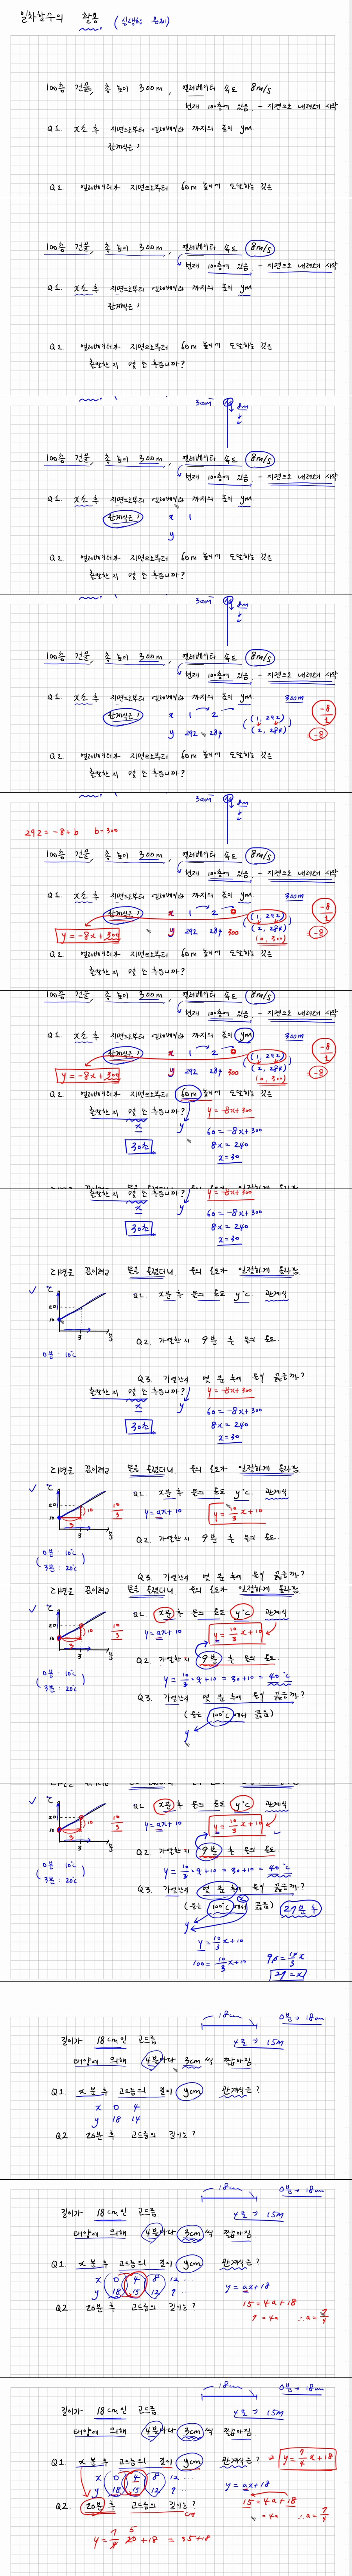 일차함수의 활용 (실생활 문제)
100층 건물, 총 높이 300m, 엘레베이터 속도 8m/s
현재 100층에 있음. → 지면으로 내려오기 시작
Q1. x초 후 지면으로부터 엘레베이터 까지의 높이 ym
관계식은?
Q2. 엘레베이터가 지면으로부터 60m 높이에 도달하는 것은
100층 건물, 총 높이 300m, 엘레베이터 속도 8m/s
현재 100층에 있음. → 지면으로 내려오기 시작
Q1. x초 후 지면으로부터 엘레베이터 까지의 높이 ym
관계식은?
Q2. 엘레베이터가 지면으로부터 60m 높이에 도달하는 것은
출발한지 몇 초 후입니까?
300m 8m
100층 건물, 총 높이 300m, 엘레베이터 속도 8m/s
현재 100층에 있음. → 지면으로 내려오기 시작
Q1. x초 후 지면으로부터 엘레베이터 까지의 높이 ym
관계식은? x 1
y
Q2. 엘레베이터가 지면으로부터 60m 높이에 도달하는 것은
출발한지 몇 초 후입니까?
300m 8m
100층 건물, 총 높이 300m, 엘레베이터 속도 8m/s
현재 100층에 있음. → 지면으로 내려오기 시작
Q1. x초 후 지면으로부터 엘레베이터 까지의 높이 ym 300m
관계식은? x 1 2 (1, 292) -8/1
y 292 284 (2, 284) = -8
Q2. 엘레베이터가 지면으로부터 60m 높이에 도달하는 것은
출발한지 몇 초 후입니까?
300m 8m
292 = -8+b b=300
100층 건물, 총 높이 300m, 엘레베이터 속도 8m/s
현재 100층에 있음. → 지면으로 내려오기 시작
Q1. x초 후 지면으로부터 엘레베이터 까지의 높이 ym 300m
관계식은? x 1 2 0 (1, 292) -8/1
y = -8x+300 y 292 284 300 (2, 284) = -8
(0, 300)
Q2. 엘레베이터가 지면으로부터 60m 높이에 도달하는 것은
출발한지 몇 초 후입니까?
100층 건물, 총 높이 300m, 엘레베이터 속도 8m/s
현재 100층에 있음. → 지면으로 내려오기 시작
Q1. x초 후 지면으로부터 엘레베이터 까지의 높이 ym 300m
관계식은? x 1 2 0 (1, 292) -8/1
y = -8x+300 y 292 284 300 (2, 284) = -8
(0, 300)
Q2. 엘레베이터가 지면으로부터 60m 높이에 도달하는 것은
출발한지 몇 초 후입니까? y = -8x+300
x y 60 = -8x+300
30초 8x = 240
x = 30
출발한지 몇 초 후입니까? y = -8x+300
x y 60 = -8x+300
30초 8x = 240
x = 30
라면을 끓이려고 물을 올렸더니 물의 온도가 일정하게 올라감.
℃ Q1. x분 후 물의 온도 y℃. 관계식
20
10
3 분
Q2. 가열한지 9분 후 물의 온도
0분 : 10℃
Q3. 가열한지 몇 분 후에 물이 끓는가?
출발한지 몇 초 후입니까? y = -8x+300
x y 60 = -8x+300
30초 8x = 240
x = 30
라면을 끓이려고 물을 올렸더니 물의 온도가 일정하게 올라감.
℃ Q1. x분 후 물의 온도 y℃. 관계식
20 10 10/3 y = ax+10 y = 10/3 x+10
10 3
3 분
Q2. 가열한지 9분 후 물의 온도
(0분 : 10℃
3분 : 20℃)
Q3. 가열한지 몇 분 후에 물이 끓는가?
라면을 끓이려고 물을 올렸더니 물의 온도가 일정하게 올라감.
℃ Q1. x분 후 물의 온도 y℃ 관계식
20 10 10/3 y = ax+10 y = 10/3 x+10
10 3
3 분
Q2. 가열한지 9분 후 물의 온도
(0분 : 10℃
3분 : 20℃)
y = 10/3 × 9+10 = 30+10 = 40℃
Q3. 가열한지 몇 분 후에 물이 끓는가?
(물은 100℃에서 끓음)
y
℃ Q1. x분 후 물의 온도 y℃ 관계식
20 10 10/3 y = ax+10 y = 10/3 x+10
10 3
3 분
Q2. 가열한지 9분 후 물의 온도
(0분 : 10℃
3분 : 20℃)
y = 10/3 × 9+10 = 30+10 = 40℃
Q3. 가열한지 몇 분 후에 물이 끓는가?
x
(물은 100℃에서 끓음) 27분 후
y
y = 10/3 x+10
100 = 10/3 x+10
27 = x
18cm 0분 → 18cm
길이가 18cm인 고드름 4분 → 15m
태양에 의해 4분마다 3cm씩 짧아짐
Q1. x분 후 고드름의 길이 ycm 관계식은?
x 0 4
y 18 14
Q2. 20분 후 고드름의 길이는?
18cm 0분 → 18cm
길이가 18cm인 고드름 4분 → 15m
태양에 의해 4분마다 3cm씩 짧아짐
Q1. x분 후 고드름의 길이 ycm 관계식은?
x 0 4 8 12 ...
y 18 15 12 9 ... y = ax+18
Q2. 20분 후 고드름의 길이는? 15 = 4a+18
7 = 4a ∴ a = 7/4
18cm 0분 → 18cm
길이가 18cm인 고드름 4분 → 15m
태양에 의해 4분마다 3cm씩 짧아짐
Q1. x분 후 고드름의 길이 ycm 관계식은? y = 7/4 x+18
x 0 4 8 12 ...
y 18 15 12 9 ... y = ax+18
Q2. 20분 후 고드름의 길이는? 15 = 4a+18
= 4a ∴ a = 7/4
y = 7/4 20 5 +18 = 35+18